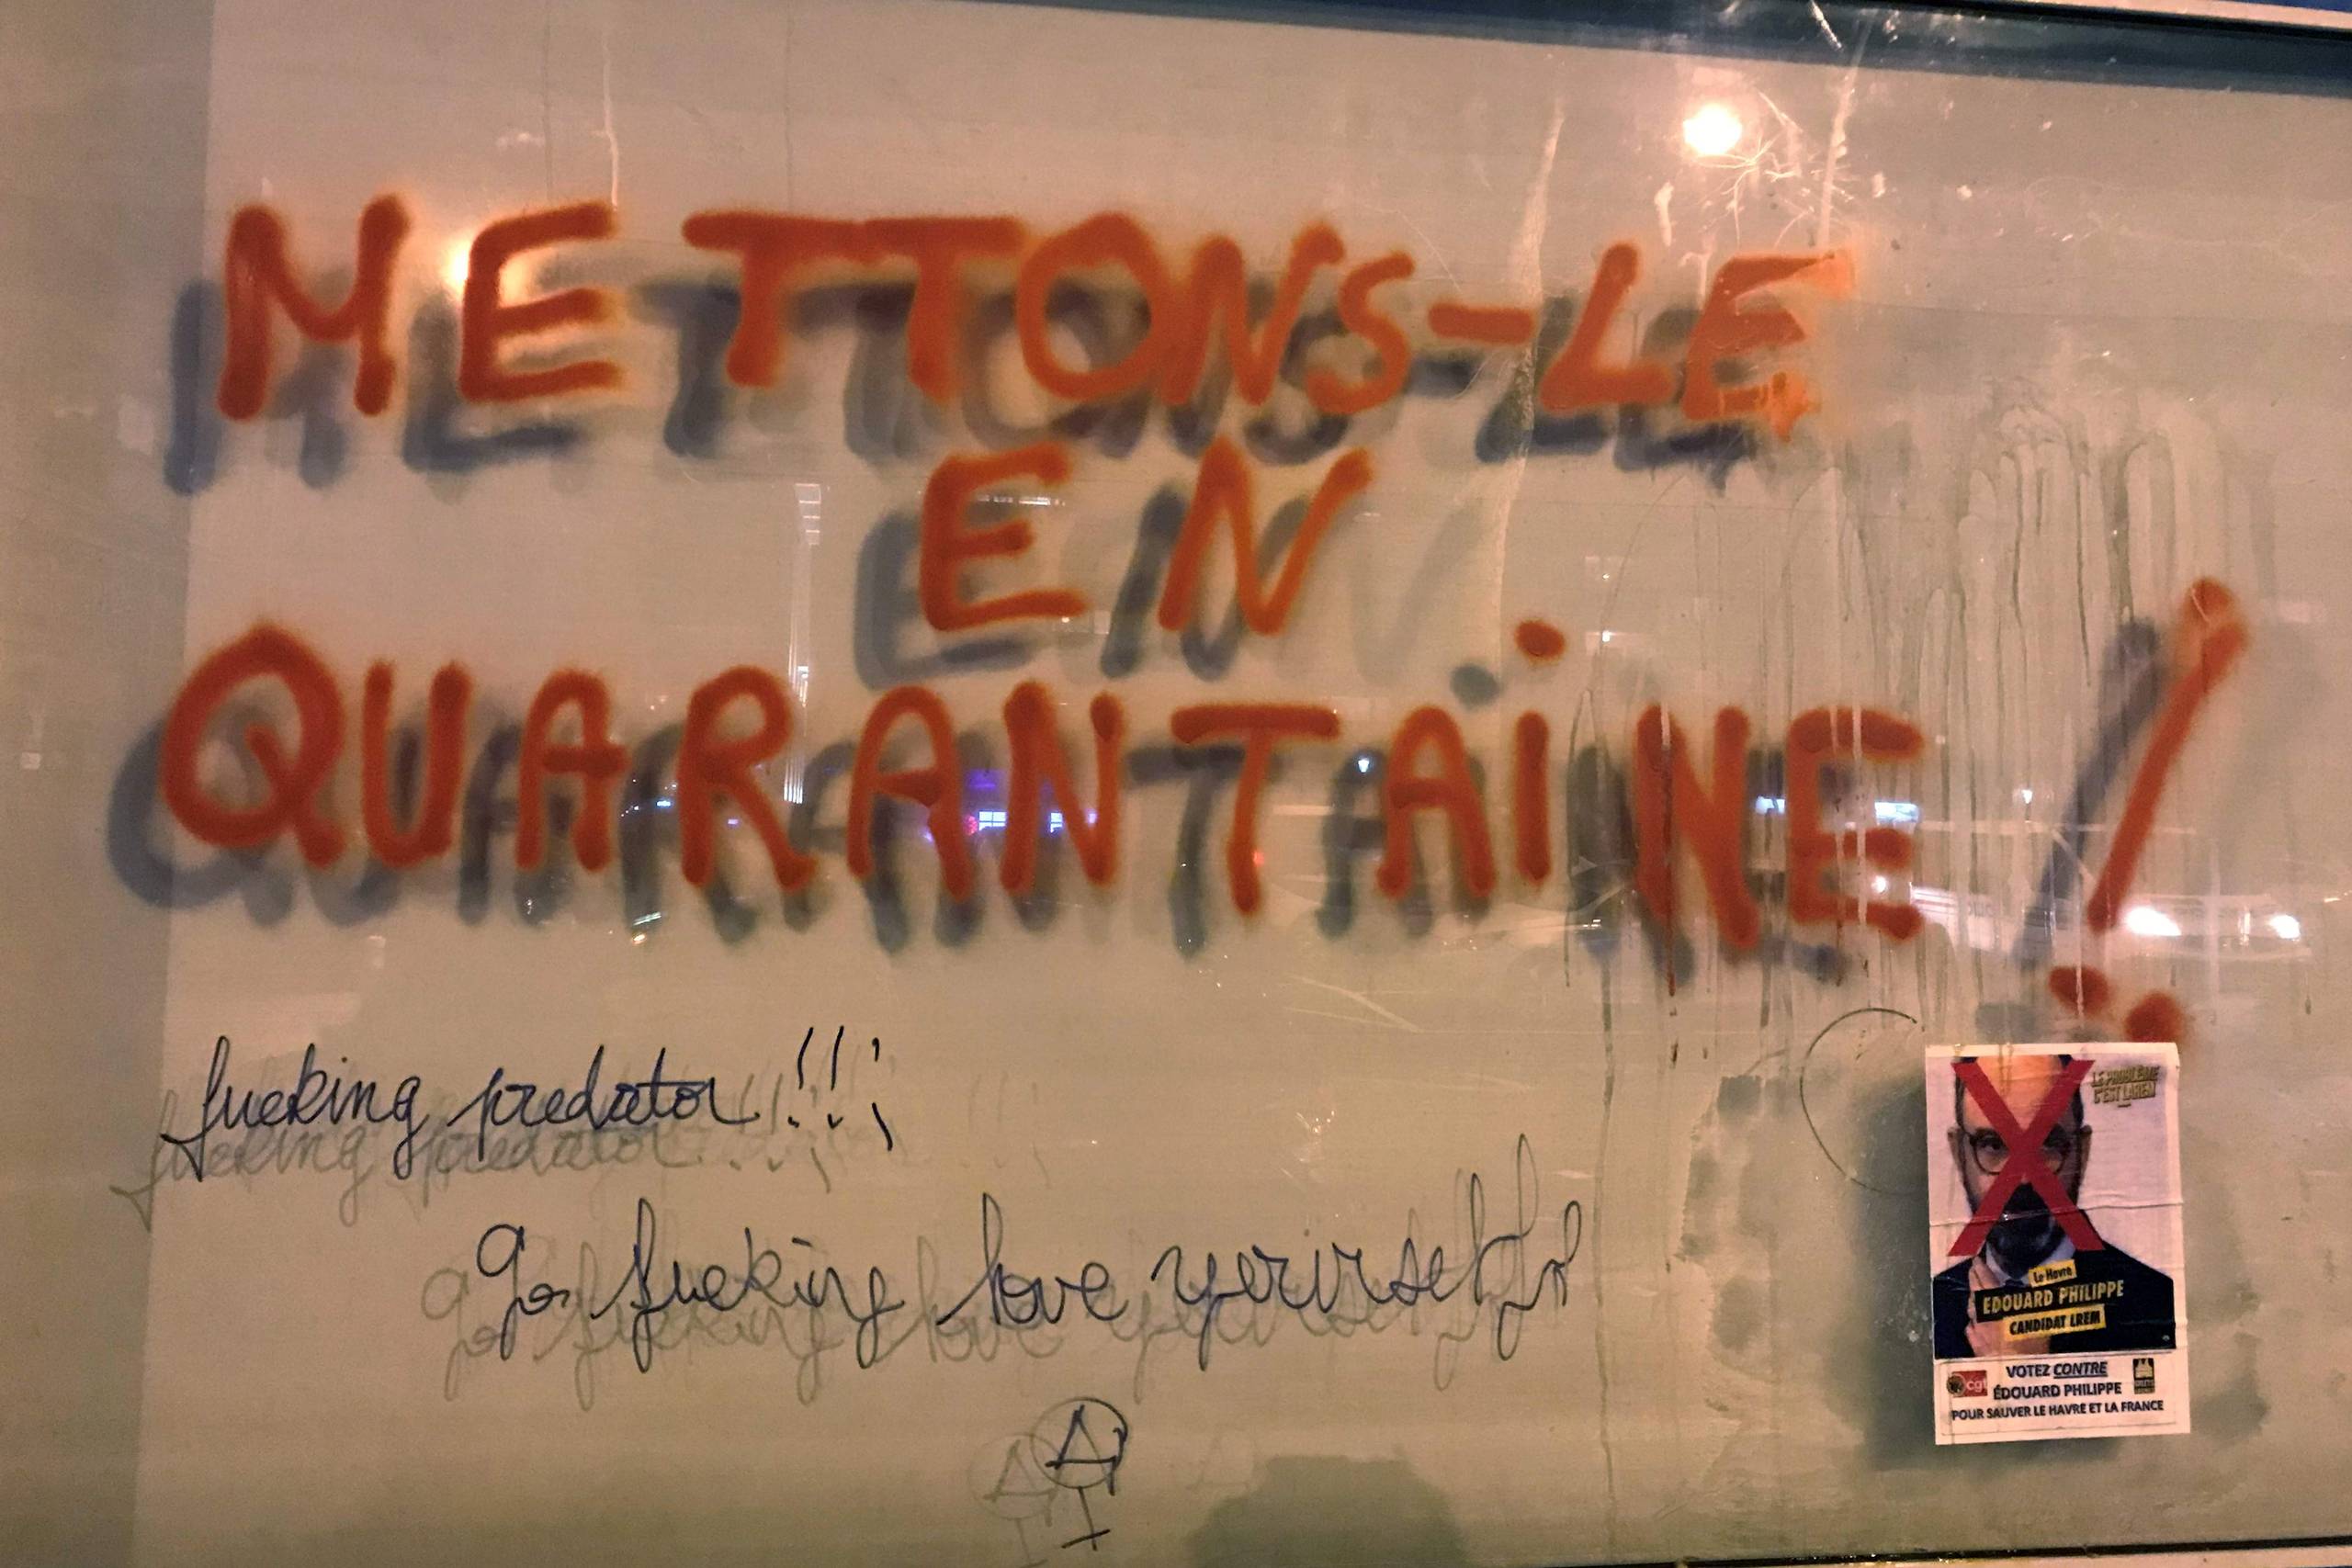 METTONS-LE
EN
QUARANTAiNE !
fucking predator !!!
go fucking love yourself
LE PROBLÈME
C'EST LAREM
Le Havre
EDOUARD PHILIPPE
CANDIDAT LREM
cgt
VOTEZ CONTRE
ÉDOUARD PHILIPPE
POUR SAUVER LE HAVRE ET LA FRANCE